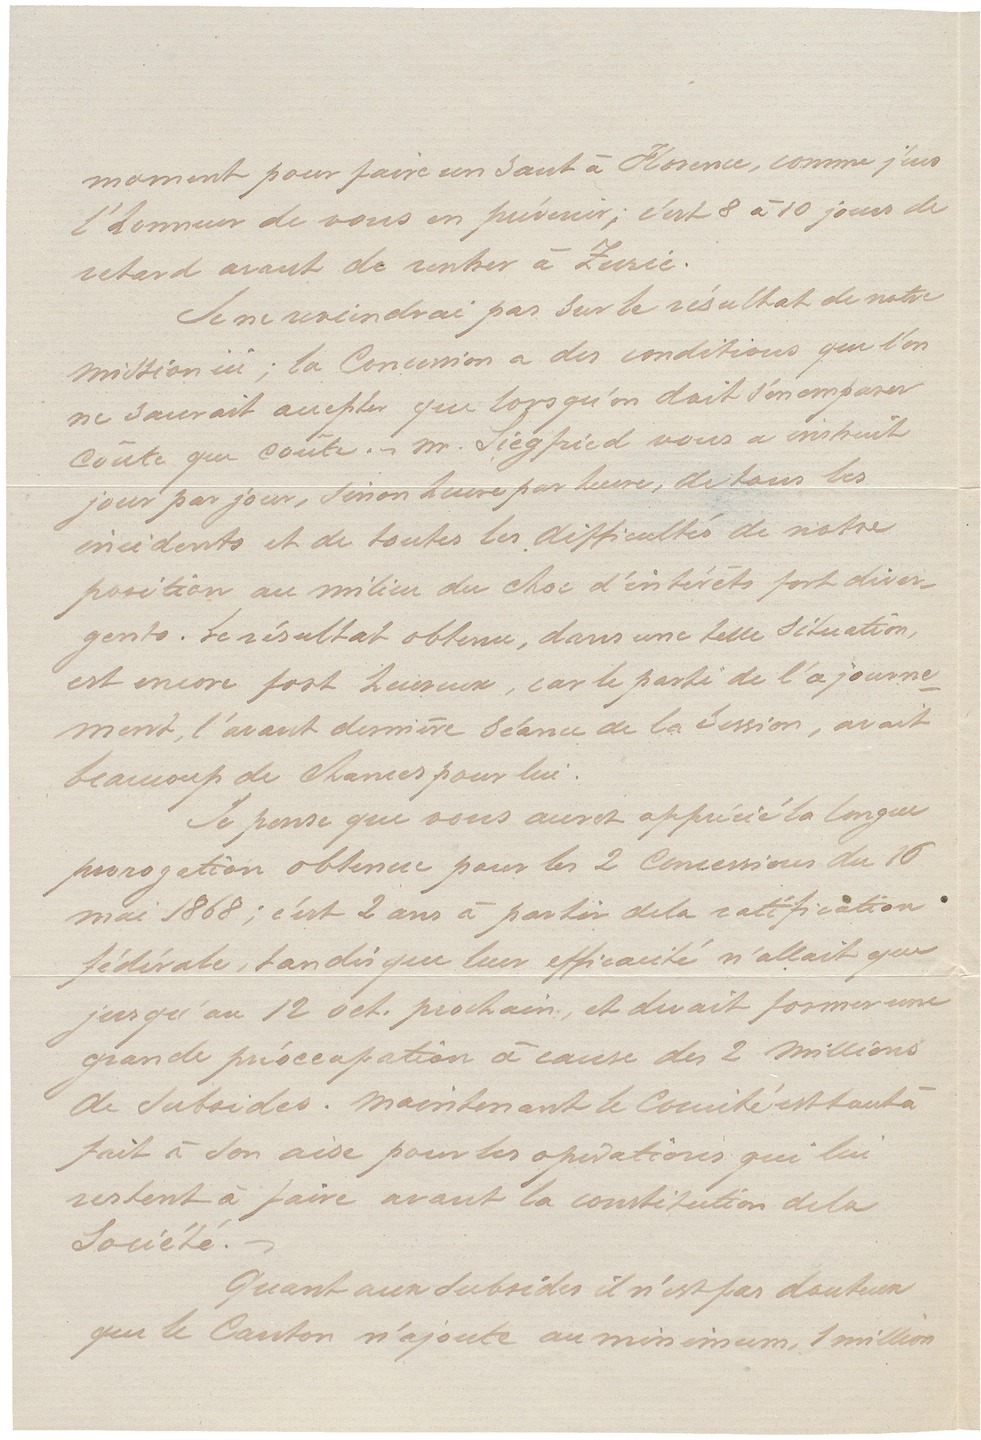 moment pour faire un saut à Florence, comme j'eus
l'honneur de vous en prévenir; c'est 8 à 10 jours de
retard avant de rentrer à Zuric.
Je ne reviendrai pas sur le résultat de notre
mission ici; la Concession a des conditions que l'on
ne saurait accepter que lorsqu'on doit s'en emparer
coûte que coûte. – Mr. Siegfried vous a instruit
jour par jour, sinon heure par heure, de tous les
incidents et de toutes les difficultés de notre
position au milieu du choc d'intérêts fort diver-
gents. Le résultat obtenu, dans une telle situation,
est encore fort heureux, car le parti de l'ajourne-
ment, l'avant dernière séance de la session, avait
beaucoup de chances pour lui.
Je pense que vous aurez apprécié la longue
prorogation obtenue pour les 2 Concessions du 16
mai 1868; c'est 2 ans à partir de la ratification
fédérale, tandis que leur efficacité n'allait que
jusqu'au 12 oct. prochain, et devait former une
grande préoccupation à cause des 2 millions
de subsides. Maintenant le Comité est tout à
fait à son aise pour les opérations qui lui
restent à faire avant la constitution de la
Société. –
Quant aux subsides il n'est pas douteux
que le Canton n'ajoute au minimum, 1 million